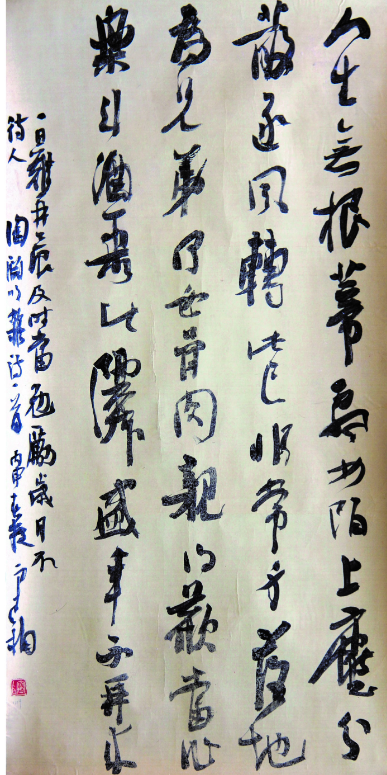 人生無根蒂飄如陌上塵分
散逐風轉此已非常身落地
為兄弟何必骨肉親得歡當作
樂斗酒聚比鄰盛年不再來
一日難再晨及時當勉勵歲月不
待人 陶淵明雜詩一首 丙申